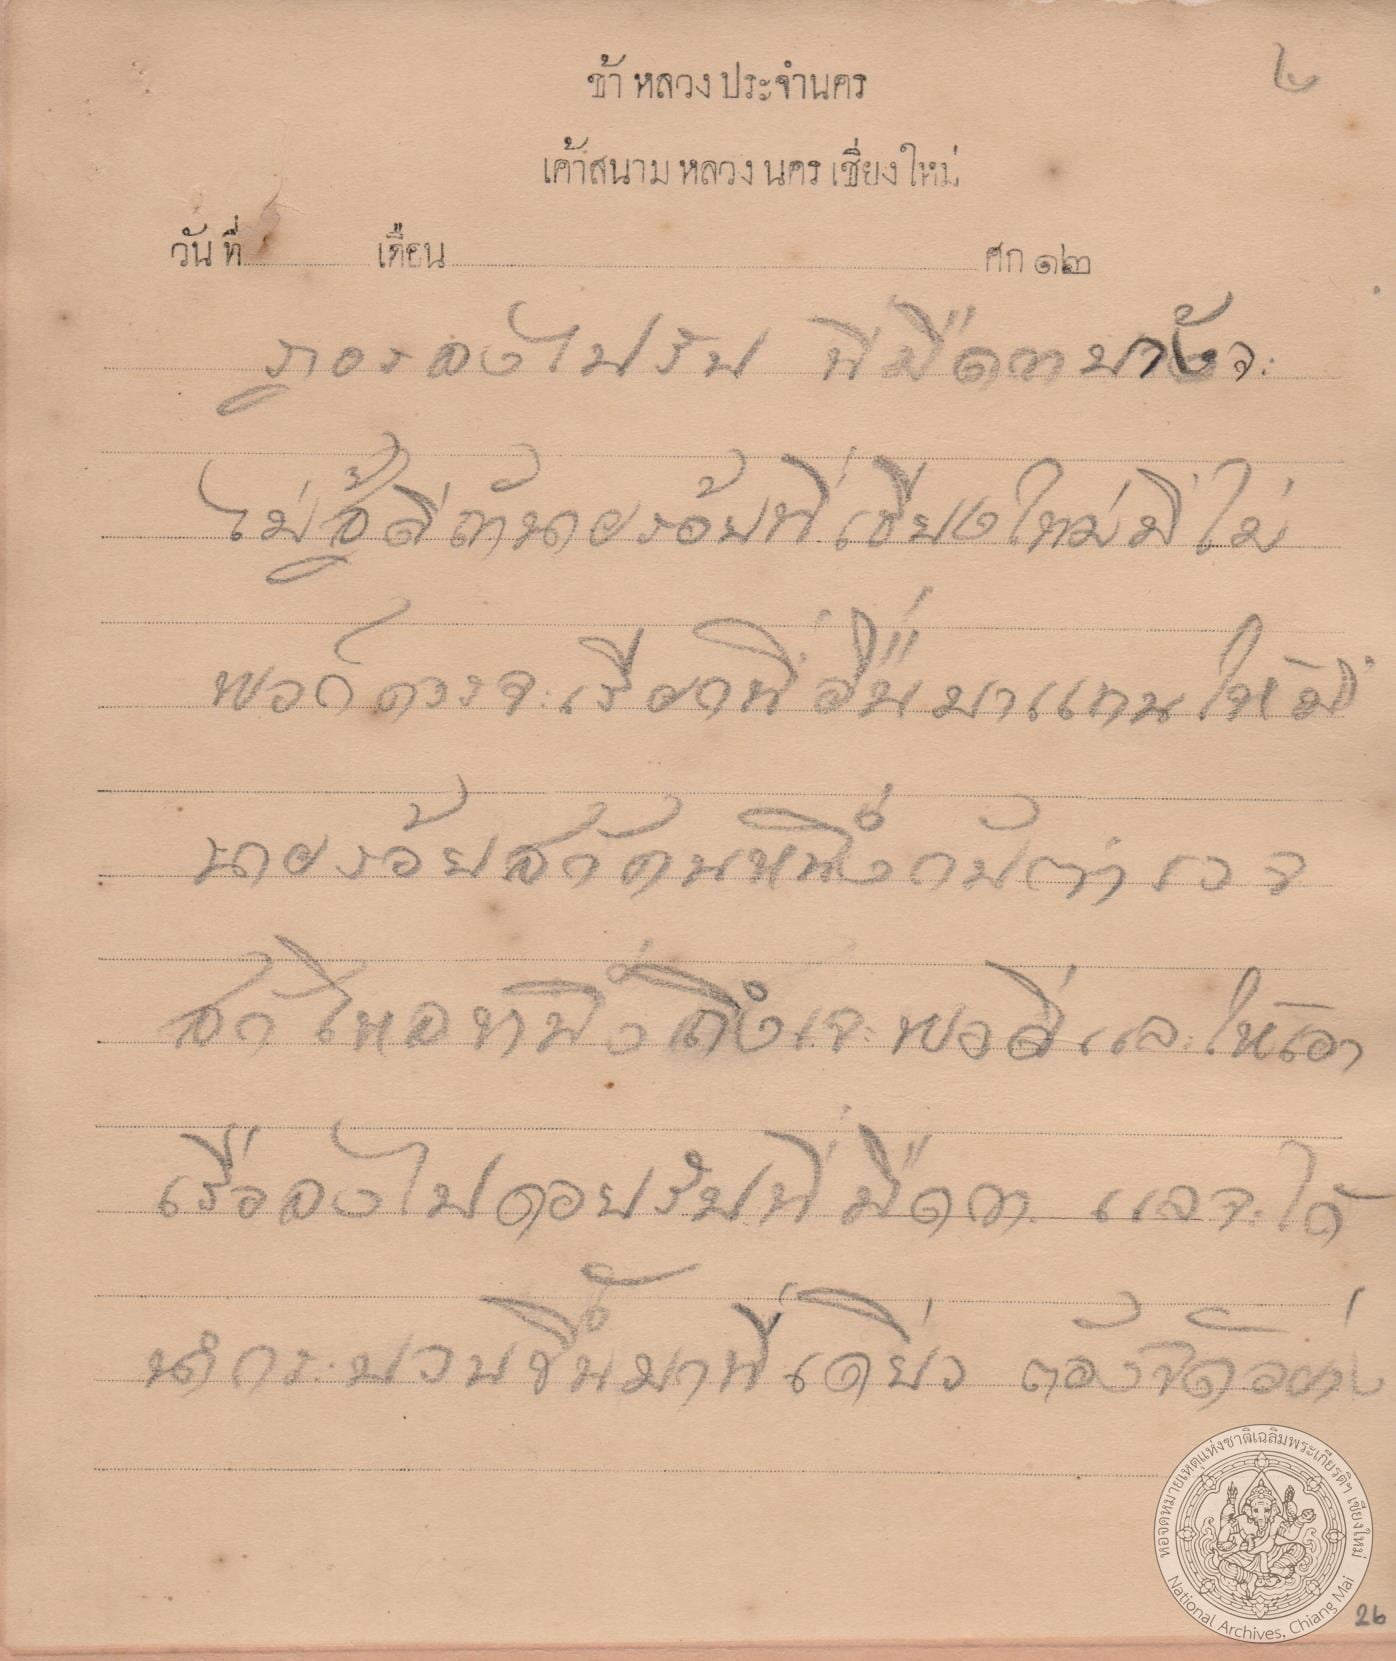 ๒
ข้าหลวงประจำนคร
เค้าสนามหลวงนครเชียงใหม่
วันที่ เดือน ศก ๑๒
ไปรับ ที่มืดกาบ้างจะ
ไม่สู้ดีถ้านายร้อยที่เชียงใหม่มีไม่
พอก็ควรจะเรียกที่อื่นมาแทนให้มี
นายร้อยสักคนหนึ่งกับตำรวจ
สักโหลหนึ่งถึงจะพอดี และให้เอา
เรื่องไปคอยรับที่มืดกา แลจะได้
นำกระบวนขึ้นมาทีเดียว ต้องจัดอย่าง
หอจดหมายเหตุแห่งชาติเฉลิมพระเกียรติฯ เชียงใหม่
National Archives, Chiang Mai
26